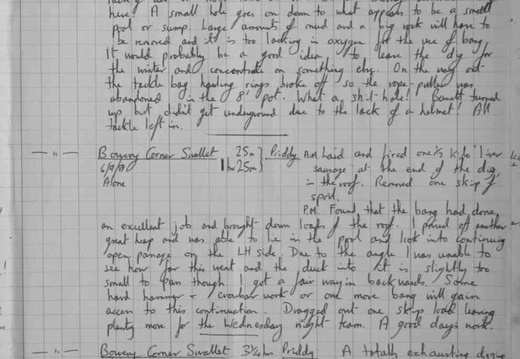 here! A small hole goes on down to what appears to be a small
pool or sump. Large amounts of mud and a big rock will have to
be removed and it is too lacking in oxygen for the use of bang.
It would probably be a good idea to leave the dig for
the winter and concentrate on something else. On the way out
the tackle bag hauling rings broke off so the rope puller was
abandoned in the 8' pot. What a shit-hole! Barrett turned
up but didn't get underground due to the lack of a helmet! All
tackle left in.
— " — Bowery Corner Swallet 25m } Priddy A.M. Laid and fired one ½ kilo 'liver
1hr 25m sausage' at the end of the dig
Alone in the roof. Removed one skip of
spoil.
P.M. Found that the bang had done
an excellent job and brought down loads of the roof. I pulled off another
great heap and was able to lie in the pool and look into continuing
open passage on the LH side. Due to the angle I was unable to
see how far this went and the duck into it is slightly too
small to pass though I got a fair way in backwards. Some
hard hammer + crowbar work or one more bang will gain
access to this continuation. Dragged out one skip load leaving
plenty more for the Wednesday night team. A good days work.
— " — Bowery Corner Swallet 3¼hrs Priddy A totally exhausting